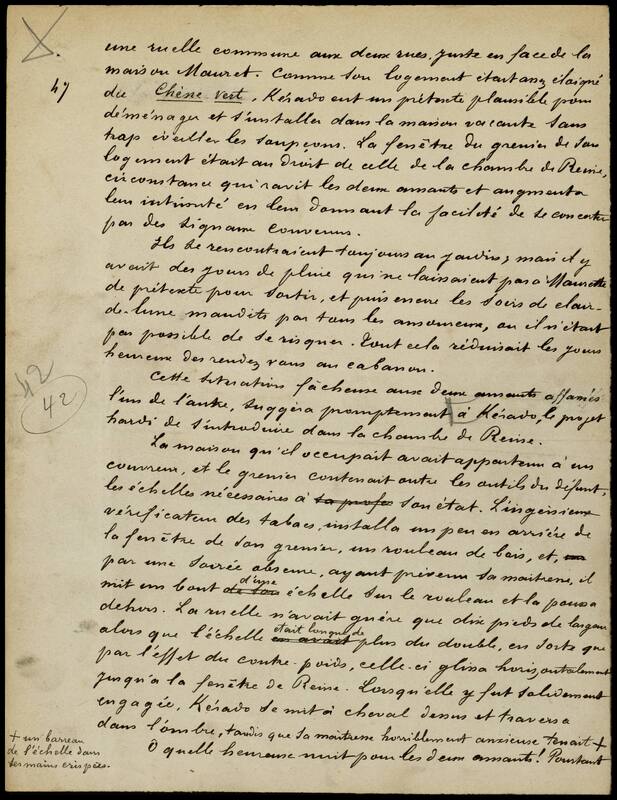 X.
47
une ruelle commune aux deux rues. Juste en face de la
maison Mauret. Comme son logement était assez éloigné
du Chêne Vert, Kérado eut un prétexte plausible pour
déménager et s'installer dans la maison vacante sans
trop éveiller les soupçons. La fenêtre du grenier de son
logement était au droit de celle de la chambre de Reine,
circonstance qui ravit les deux amants et augmenta
leur intimité en leur donnant la facilité de se concerter
par des signaux convenus.
Ils se rencontraient toujours au jardin; mais il y
avait des jours de pluie qui ne laissaient pas à
de prétexte pour sortir, et puis encore les soirs de clair-
de-lune maudits par tous les amoureux, où il n'était
pas possible de se risquer. Tout cela réduisait les jours
heureux des rendez vous au cabanon.
42
42
Cette situation fâcheuse aux deux amants affamés
l'un de l'autre, suggéra promptement à Kérado, le projet
hardi de s'introduire dans la chambre de Reine.
La maison qu'il occupait avait appartenu à un
couvreur, et le grenier contenait outre les outils du défunt,
les échelles nécessaires à sa profe son état. L'ingénieux
vérificateur des tabacs, installa un peu en arrière de
la fenêtre de son grenier, un rouleau de bois, et,
par une soirée obscure, ayant prévenu sa maitresse, il
mit un bout de son d'une échelle sur le rouleau et la poussa
dehors. La ruelle n'avait guère que dix pieds de largeur
alors que l'échelle en avait était longue de plus du double, en sorte que
par l'effet du contre-poids, celle-ci glissa horizontalement
jusqu'à la fenêtre de Reine. Lorsqu'elle y fut solidement
engagée, Kérado se mit à cheval dessus et traversa
dans l'ombre, tandis que sa maitresse horriblement anxieuse tenait +
+ un barreau
de l'échelle dans
ses mains crispées.
O quelle heureuse nuit pour les deux amants! Pourtant